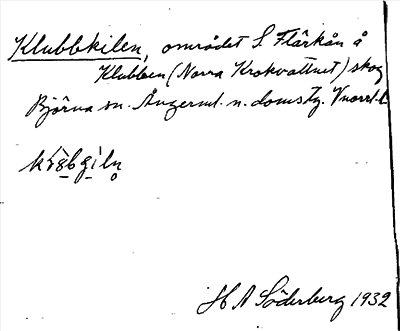 Klubbkilen, området S Flärkån å
Klubben (Norra Krokvattnet) skog
Björna sn. Ångerml. n. domsg. Vnorrl. l.
H A Söderberg 1932